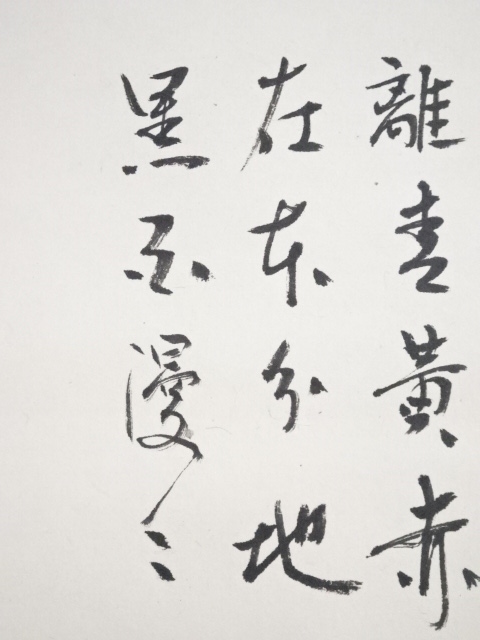 離青黃赤
在本分地
黑不漫々